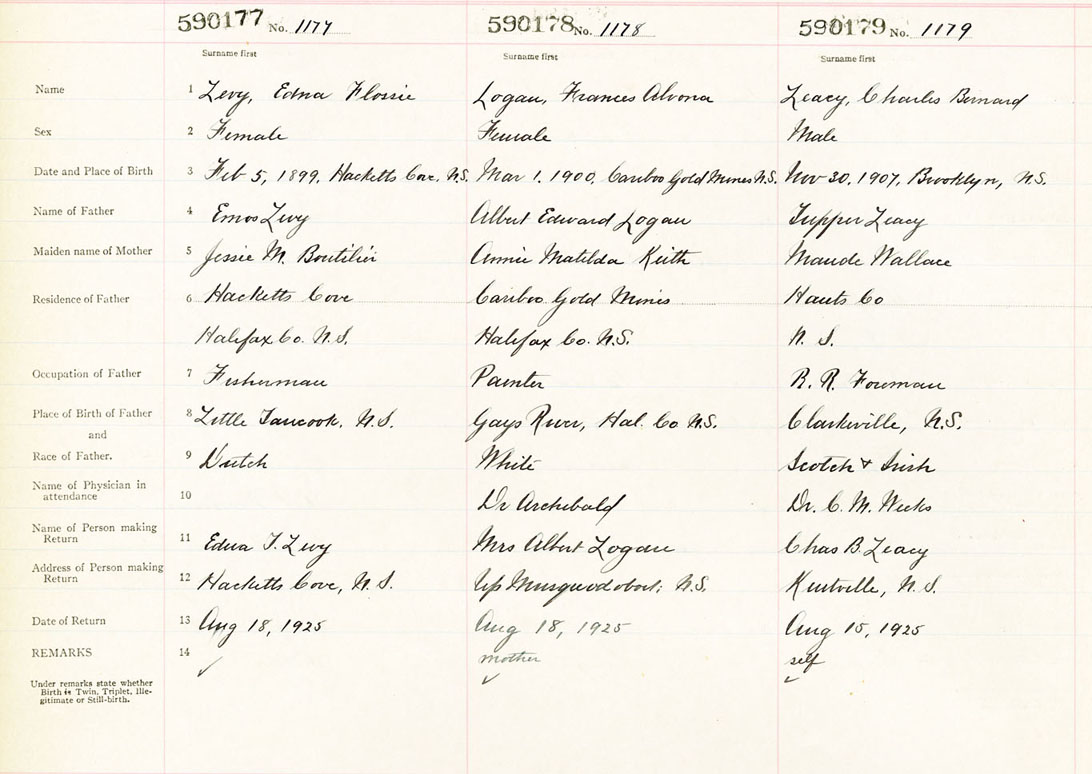 590177 No. 1177 590178 No. 1178 590179 No. 1179
Surname first Surname first Surname first
Name 1 Levy, Edna Flossie Logan, Frances Alvona Leacy, Charles Bernard
Sex 2 Female Female Male
Date and Place of Birth 3 Feb 5, 1899, Hacketts Cove, N.S. Mar 1, 1900, Cariboo Gold Mines N.S. Nov 30, 1907, Brooklyn, N.S.
Name of Father 4 Emos Levy Albert Edward Logan Tupper Leacy
Maiden name of Mother 5 Jessie M. Boutilier Annie Matilda Keith Maude Wallace
Residence of Father 6 Hacketts Cove Cariboo Gold Mines Hants Co
Halifax Co. N.S. Halifax Co. N.S. N. S.
Occupation of Father 7 Fisherman Painter R. R. Foreman
Place of Birth of Father 8 Little Tancook, N.S. Gays River, Hal. Co N.S. Clarkville, N.S.
and
Race of Father. 9 Dutch White Scotch & Irish
Name of Physician in
attendance 10 Dr Archibald Dr. C. M. Weeks
Name of Person making
Return 11 Edna F. Levy Mrs Albert Logan Chas B. Leacy
Address of Person making
Return 12 Hacketts Cove, N.S. Up Musquodoboit, N.S. Kentville, N.S.
Date of Return 13 Aug 18, 1925 Aug 18, 1925 Aug 15, 1925
REMARKS 14 ✓ mother ✓ self ✓
Under remarks state whether
Birth is Twin, Triplet, Ille-
gitimate or Still-birth.